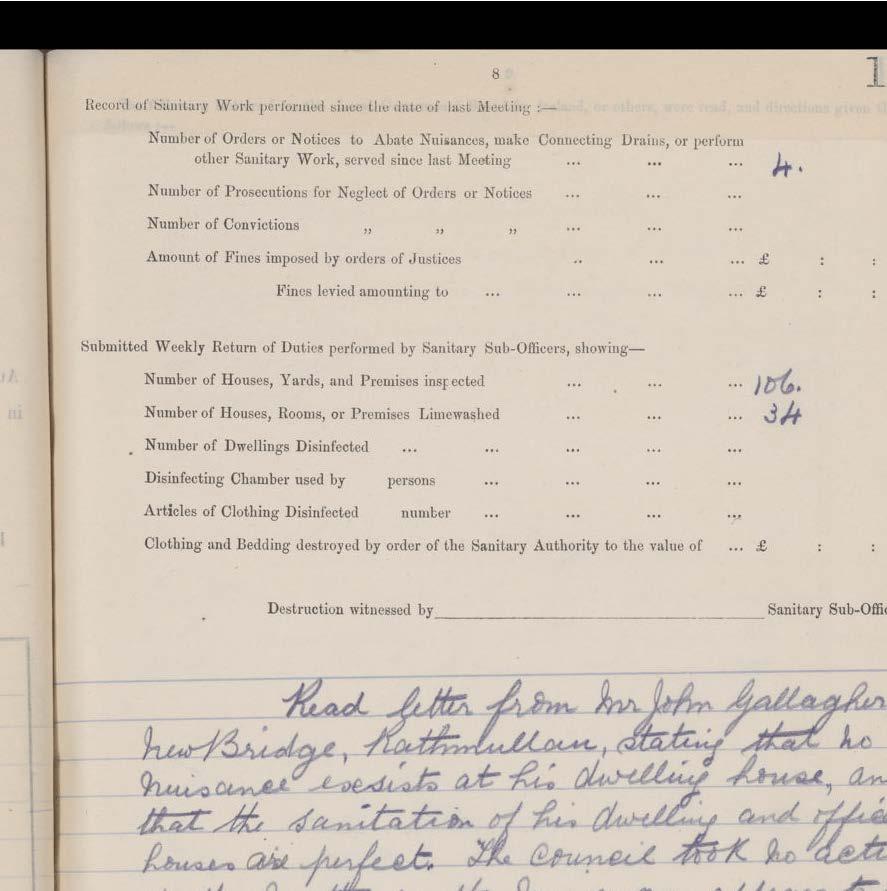 8
1
Record of Sanitary Work performed since the date of last Meeting :—
Number of Orders or Notices to Abate Nuisances, make Connecting Drains, or perform
other Sanitary Work, served since last Meeting ... ... ... 4.
Number of Prosecutions for Neglect of Orders or Notices ... ... ...
Number of Convictions „ „ „ ... ... ...
Amount of Fines imposed by orders of Justices .. ... ... £ : :
Fines levied amounting to ... ... ... ... £ : :
Submitted Weekly Return of Duties performed by Sanitary Sub-Officers, showing—
Number of Houses, Yards, and Premises inspected ... ... ... 106.
Number of Houses, Rooms, or Premises Limewashed ... ... ... 34
Number of Dwellings Disinfected ... ... ... ... ...
Disinfecting Chamber used by persons ... ... ... ...
Articles of Clothing Disinfected number ... ... ... ...
Clothing and Bedding destroyed by order of the Sanitary Authority to the value of ... £ : :
Destruction witnessed by Sanitary Sub-Offic
Read letter from Mr John Gallagher
New Bridge, Rathmullan, stating that no
nuisance exsists at his dwelling house, an
that the sanitation of his dwelling and offic
houses are perfect. The Council took no acti